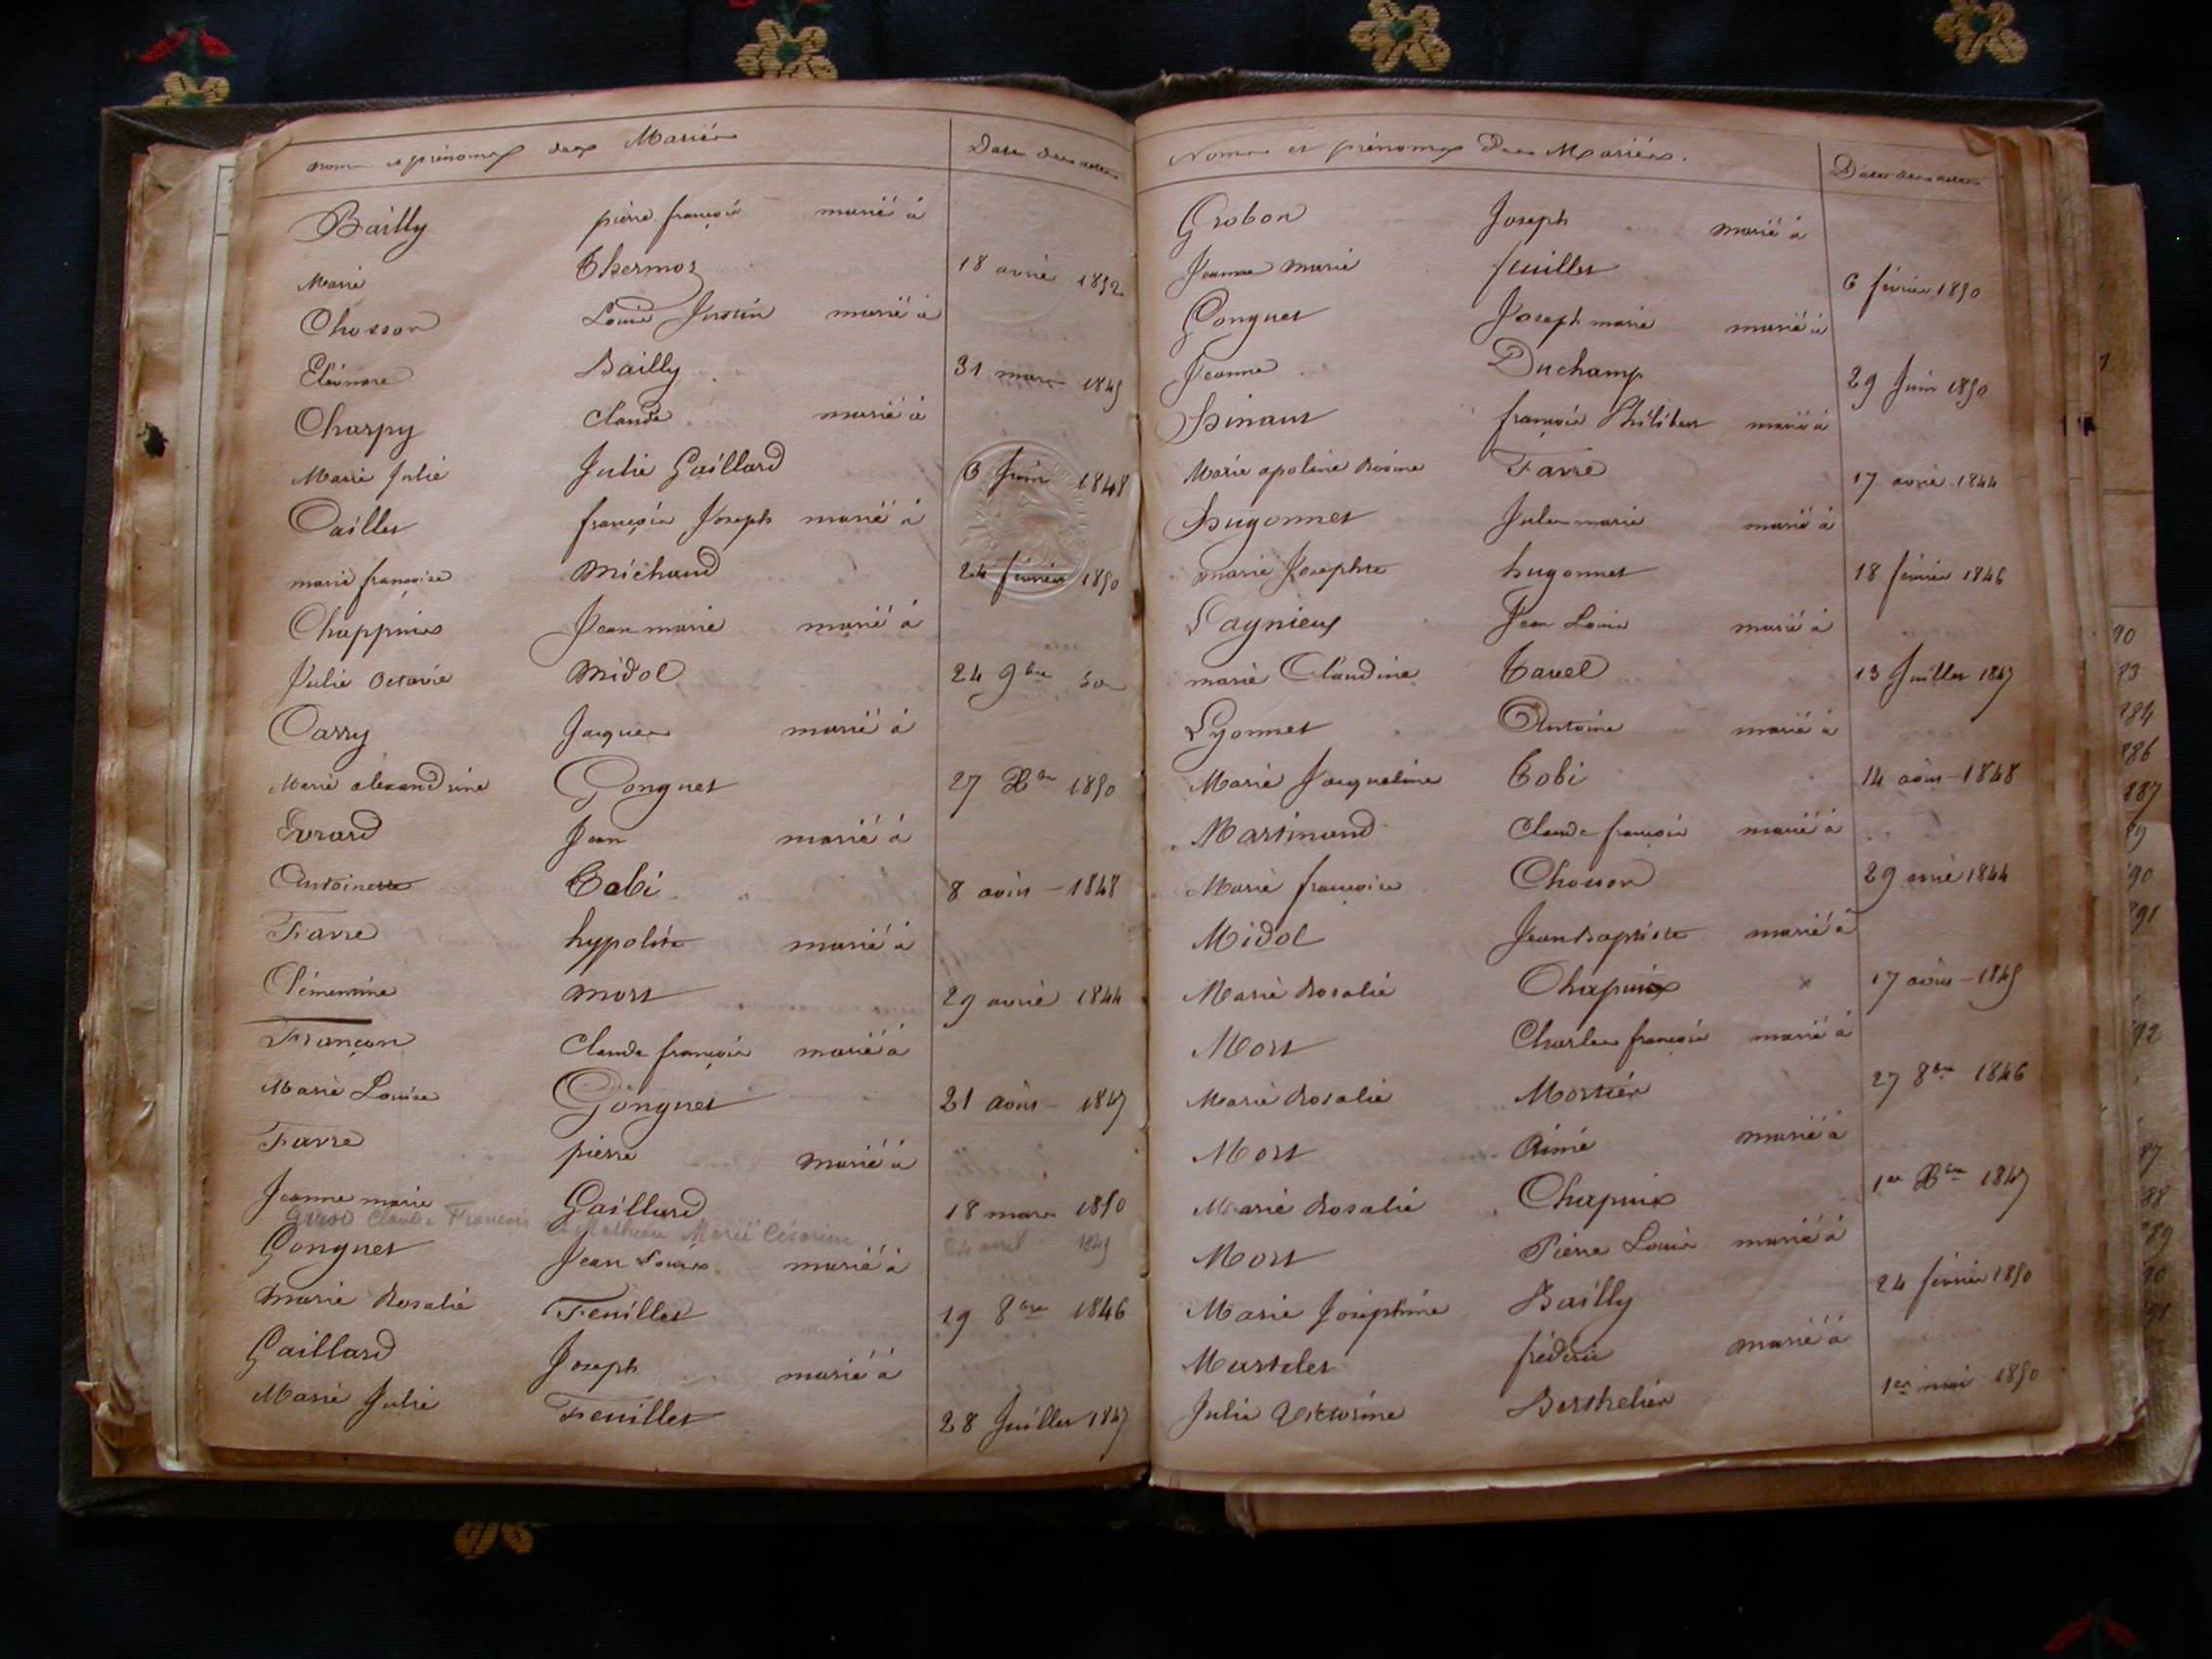 noms et prénoms des Mariés
Date des actes
Bailly pierre françois marié à
Marie Thermoz 18 avril 1852
Chosson Louis Justin marié à
Eléonore Bailly 31 mars 1845
Charpy claude marié à
Marie Julie Julie Gaillard 6 Juin 1848
Caillet françois Joseph marié à
marie françoise Michaud 24 février 1850
Chappuis Jean marie marié à
Julie Octavie Midol 24 9bre 50
Carry Jacques marié à
Marie alexandrine Gonguet 27 Xbre 1850
Evrard Jean marié à
Antoinette Cabi 8 août 1848
Favre hypolite marié à
Clémentine mort 29 avril 1844
Françon Claude françois marié à
Marie Louise Gonguet 21 août 1847
Favre pierre marié à
Jeanne marie Gaillard 18 mars 1850
Claude François Mathieu Marie Césarine avril 1849
Gonguet Jean Louis marié à
Marie Rosalie Feuillet 19 8bre 1846
Gaillard Joseph marié à
Marie Julie Feuillet 28 Juillet 1847
Noms et prénoms Des Mariés.
Date des actes
Grobon Joseph marié à
Jeanne Marie feuillet 6 février 1850
Gonguet Joseph marie marié à
Jeanne Duchamp 29 Juin 1850
hinaut françois Philibert marié à
Marie apoline Rosine Favre 17 avril 1844
hugonnet Jules marie marié à
marie Josephte hugonnet 18 février 1846
Lagnieux Jean Louis marié à
marie Claudine Cavel 13 Juillet 1847
Lyonnet Antoine marié à
Marie Jacqueline Cobi 14 août 1848
Martinand Claude françois marié à
Marie françoise Chosson 29 avril 1844
Midol Jean baptiste marié à
Marie Rosalie Chapuix x 17 août 1845
Mort Charles françois marié à
Marie Rosalie Mortier 27 8bre 1846
Mort Aimé marié à
Marie Rosalie Chapuix 1er Xbre 1847
Mort Pierre Louis marié à
Marie Joséphine Bailly 24 février 1850
Murtelet fréderic marié à
Julie Victorine Berthelier 1er mai 1850